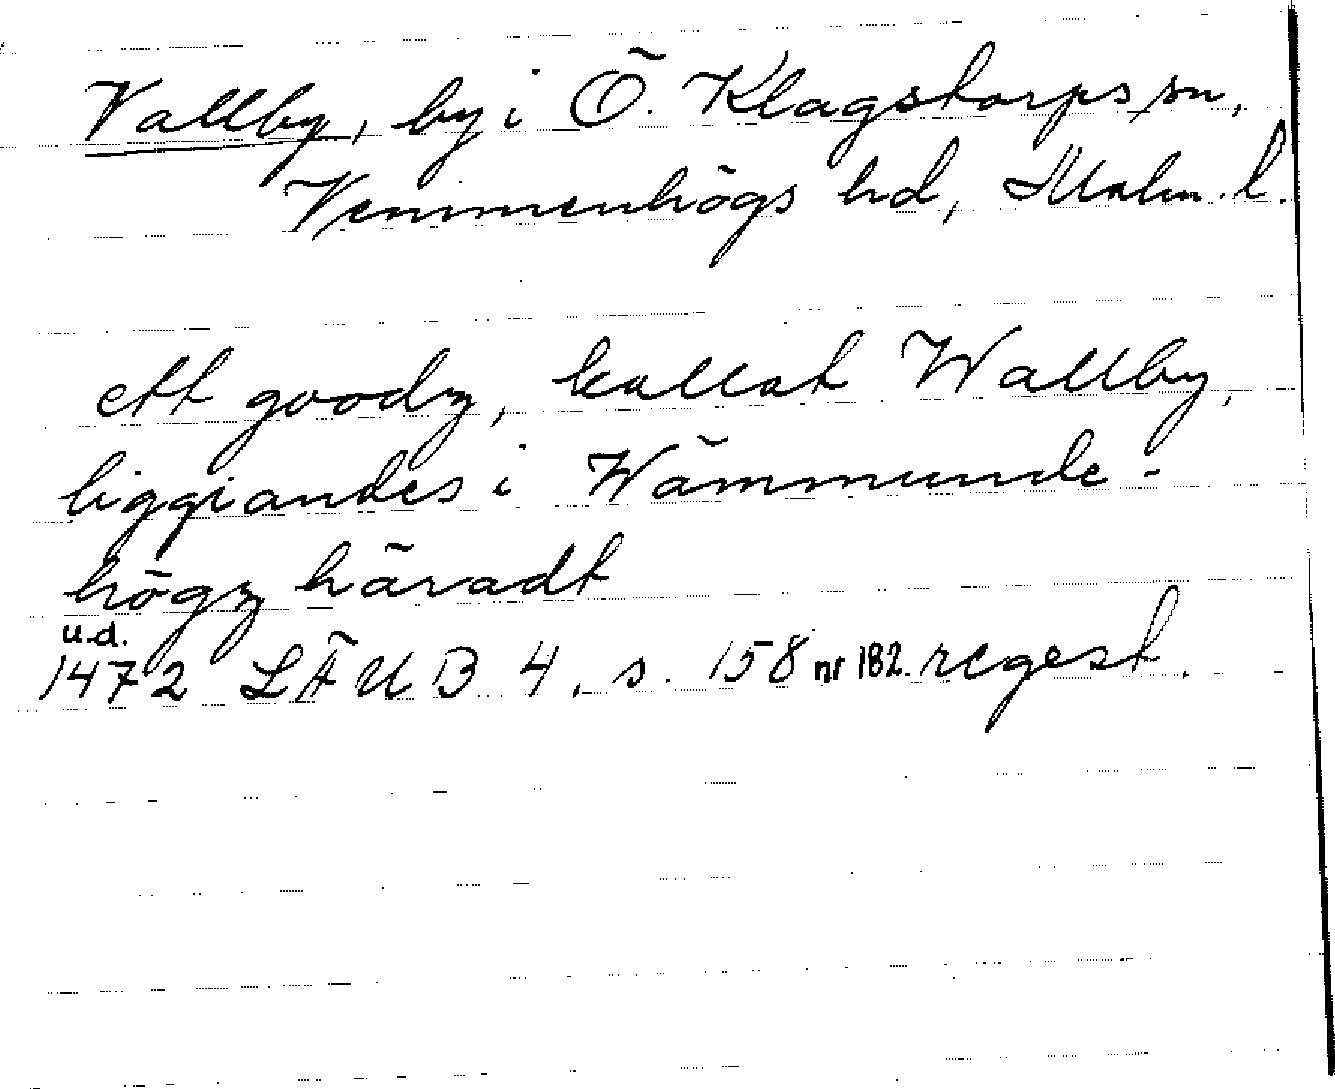 Vallby, by i Ö. Klagstorps sn,
Vemmenhögs hd, Malm. l.
ett goodz, kallat Wallby,
liggiandes i Wämmunde-
högz häradt
u.d.
1472 LÄUB 4, s. 158 nr 182. regest.